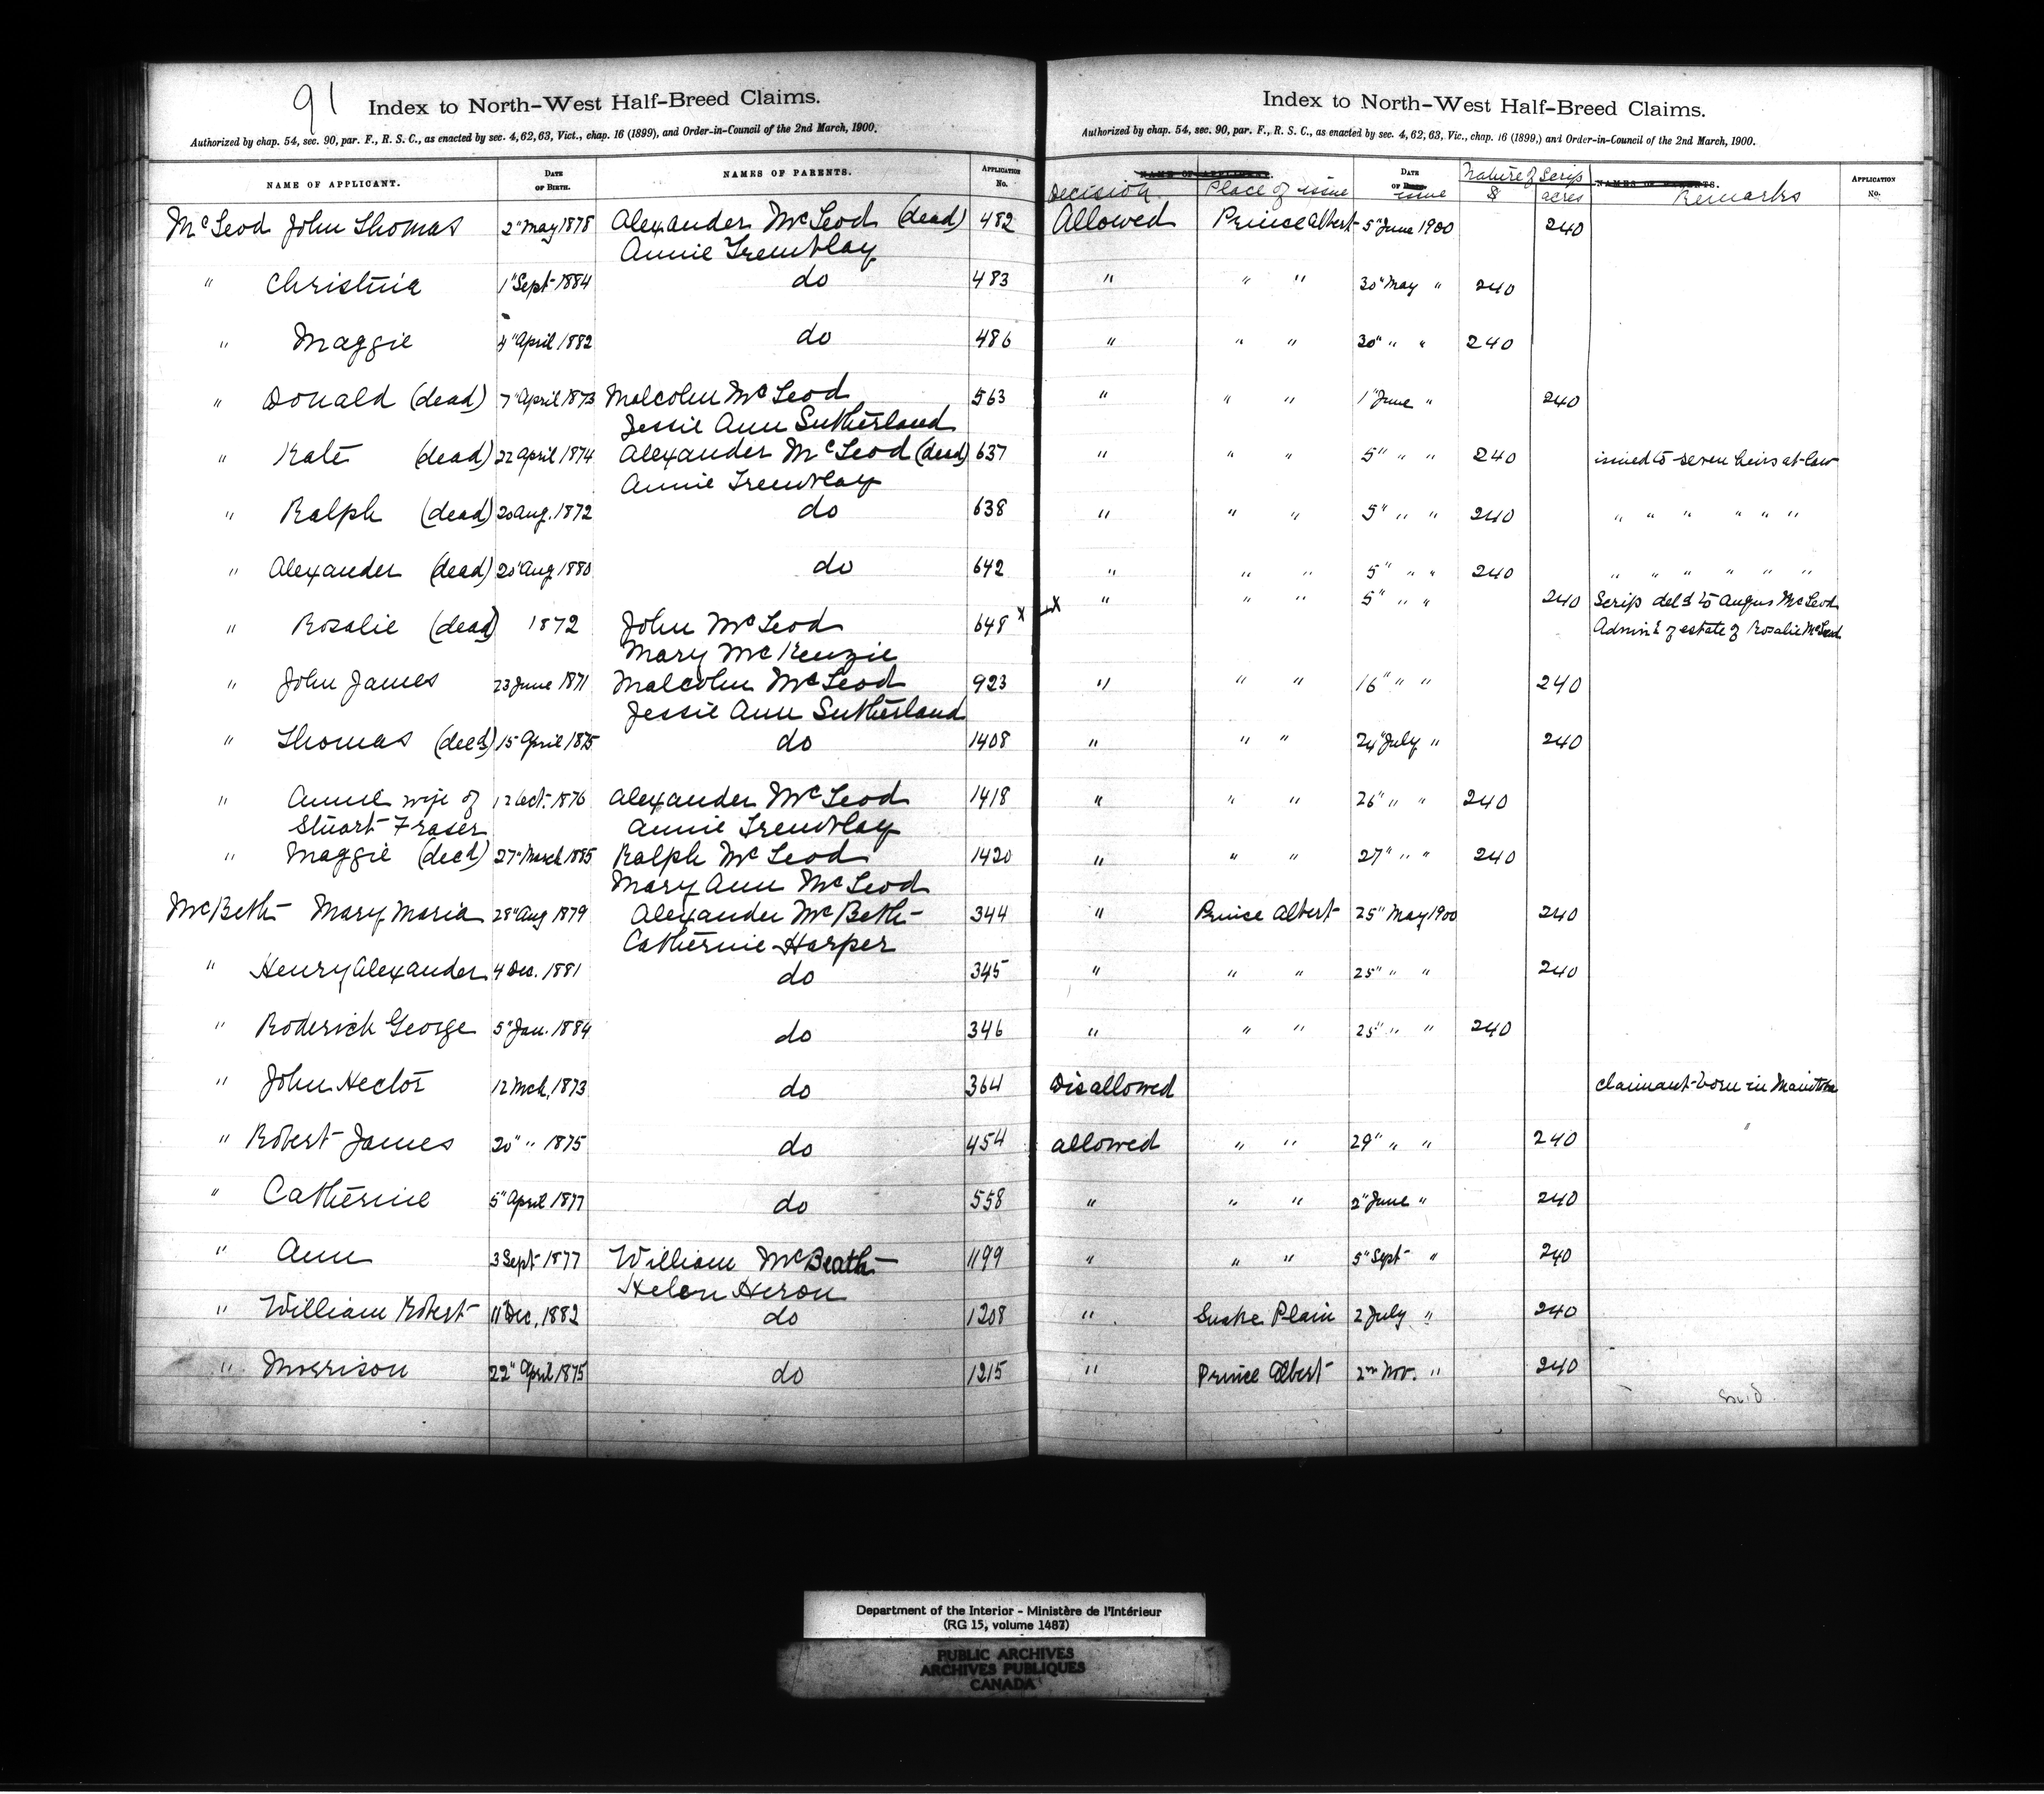 91
Index to North-West Half-Breed Claims.
Authorized by chap. 54, sec. 90, par. F., R. S. C., as enacted by sec. 4, 62, 63, Vict., chap. 16 (1899), and Order-in-Council of the 2nd March, 1900.
NAME OF APPLICANT. DATE OF BIRTH. NAMES OF PARENTS. APPLICATION No.
McLeod John Thomas 2" May 1878 Alexander McLeod (dead) 482
Annie Tremblay
" Christinie 1" Sept 1884 do 483
" Maggie 4" April 1882 do 486
" Donald (dead) 7" April 1873 Malcolm McLeod 563
Jessie Ann Sutherland
" Kate (dead) 22 April 1874 Alexander McLeod (dead) 637
Annie Tremblay
" Ralph (dead) 20 Aug. 1872 do 638
" Alexander (dead) 20" Aug 1880 do 642
" Rosalie (dead) 1872 John McLeod 648 x
Mary McKenzie
" John James 23 June 1871 Malcolm McLeod 923
Jessie Ann Sutherland
" Thomas (decd) 15 April 1875 do 1408
" Annie wife of 12 Oct. 1876 Alexander McLeod 1418
Stuart Fraser Annie Tremblay
" Maggie (decd) 27" March 1885 Ralph McLeod 1420
Mary Ann McLeod
McBeth Mary Maria 28" Aug 1879 Alexander McBeth 344
Catherine Harper
" Henry Alexander 4 Dec. 1881 do 345
" Roderick George 5" Jan. 1884 do 346
" John Hector 12 Mch, 1873 do 364
" Robert James 20" " 1875 do 454
" Catherine 5" April 1877 do 558
" Ann 3 Sept 1877 William McBeath 1199
Helen Heron
" William Robert 11" Dec, 1882 do 1208
" Morrison 22" April 1875 do 1215
Index to North-West Half-Breed Claims.
Authorized by chap. 54, sec. 90, par. F., R. S. C., as enacted by sec. 4, 62, 63, Vic., chap. 16 (1899,) and Order-in-Council of the 2nd March, 1900.
NAME OF APPLICANT. DATE OF issue Nature of Scrip NAMES OF PARENTS. APPLICATION No.
Decision Place of issue $ acres Remarks
Allowed Prince Albert 5" June 1900 240
" " " 30" May " 240
" " " 30" " " 240
" " " 1" June " 240
" " " 5" " " 240 issued to seven heirs at law
" " " 5" " " 240 " " " " " "
" " " 5" " " 240 " " " " " "
x " " " 5" " " 240 Scrip deld to Angus McLeod
Adminr of estate of Rosalie McLeod
" " " 16" " " 240
" " " 24" July " 240
" " " 26" " " 240
" " " 27" " " 240
" Prince Albert 25" May 1900 240
" " " 25" " " 240
" " " 25" " " 240
Disallowed claimant born in Manitoba
allowed " " 29" " " 240 "
" " " 2" June " 240
" " " 5" Sept " 240
" Snake Plain 2 July " 240
" Prince Albert 2nd Nov. " 240
Department of the Interior - Ministère de l'Intérieur
(RG 15, volume 1487)
PUBLIC ARCHIVES
ARCHIVES PUBLIQUES
CANADA